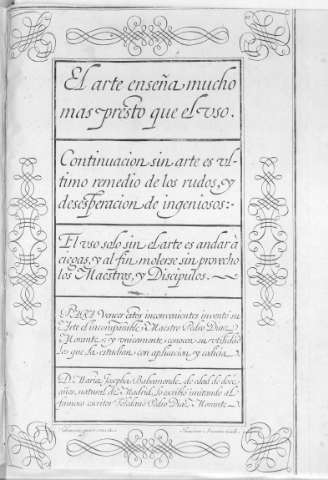 El arte enseña mucho
mas presto que el vso.
Continuacion sin arte es vl-
timo remedio de los rudos, y
desesperacion de ingeniosos:-
El vso solo sin el arte es andar à
ciegas, y al fin molerse sin provecho
los Maestros, y Discipulos.
PARA Vencer estos inconvenientes invento su
Arte el incomparable Maestro Pedro Diaz
Morante, y vnicamente conocen su vtilidad
los que la estudian con aplicacion y codicia.
D. Maria Josepha Bahamonde, de edad de doce
años, natural de Madrid, lo escribio imitando al
famoso escritor Toledano Pedro Diaz Morante